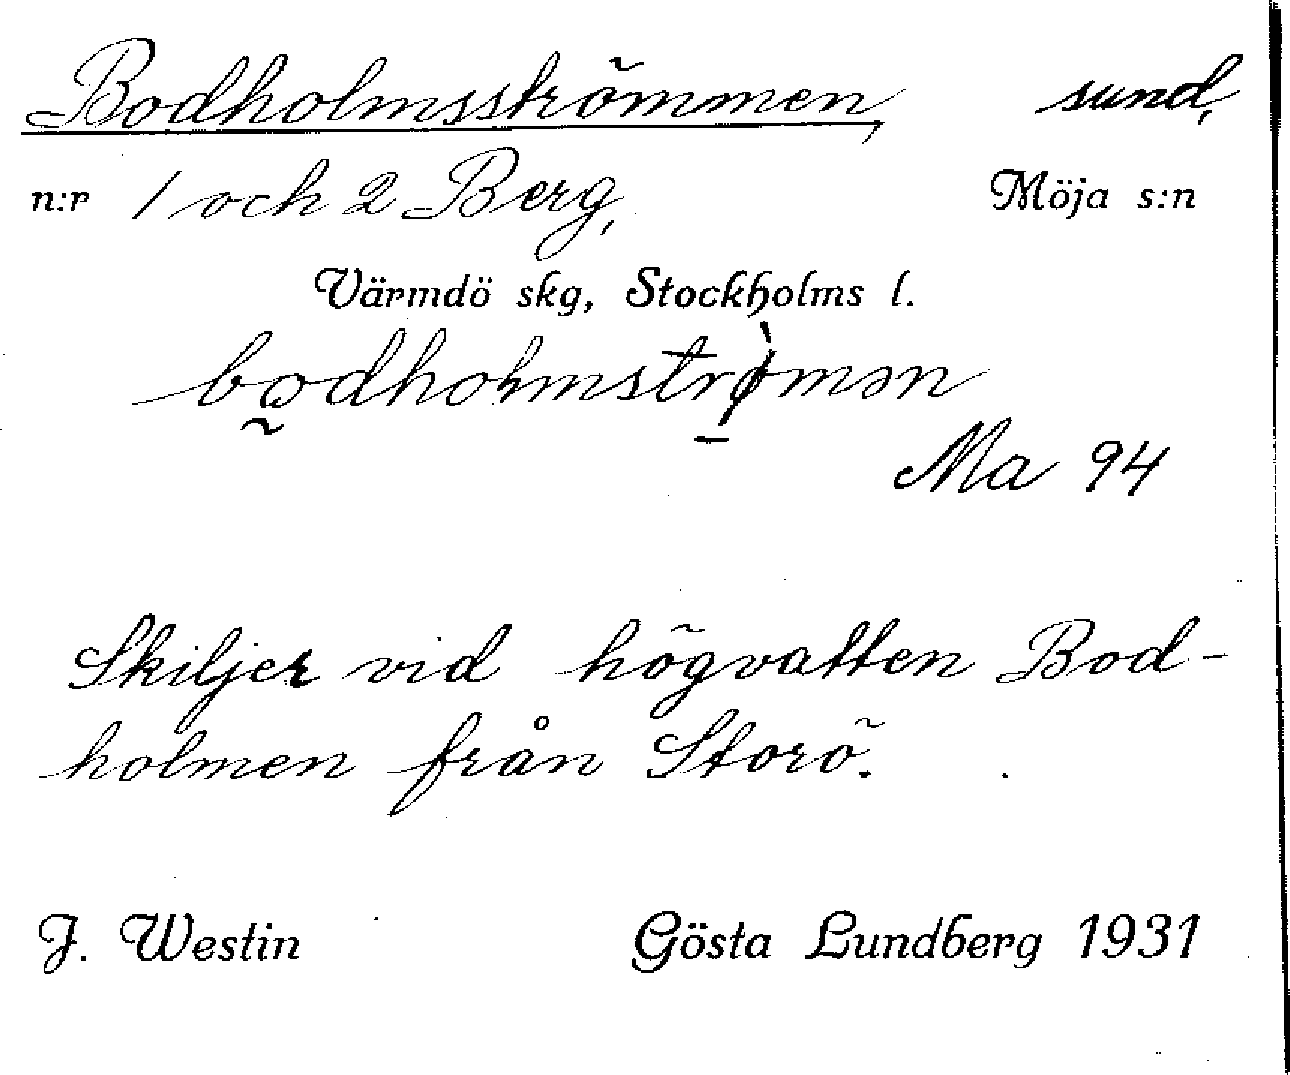 Bodholmsströmmen, sund,
n:r 1 och 2 Berg, Möja s:n
Värmdö skg, Stockholms l.
bodholmstrømən
Ma 94
Skiljer vid högvatten Bod-
holmen från Storö.
J. Westin Gösta Lundberg 1931